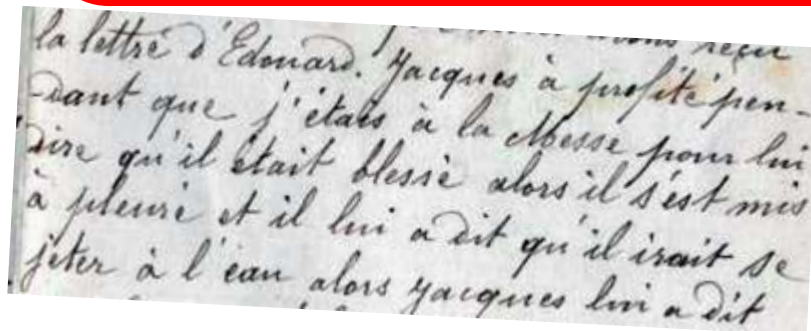 reçu
la lettre d'Edouard. Jacques à profité pen-
-dant que j'étais à la Messe pour lui
dire qu'il était blessé alors il s'est mis
à pleuré et il lui a dit qu'il irait se
jeter à l'eau alors Jacques lui a dit